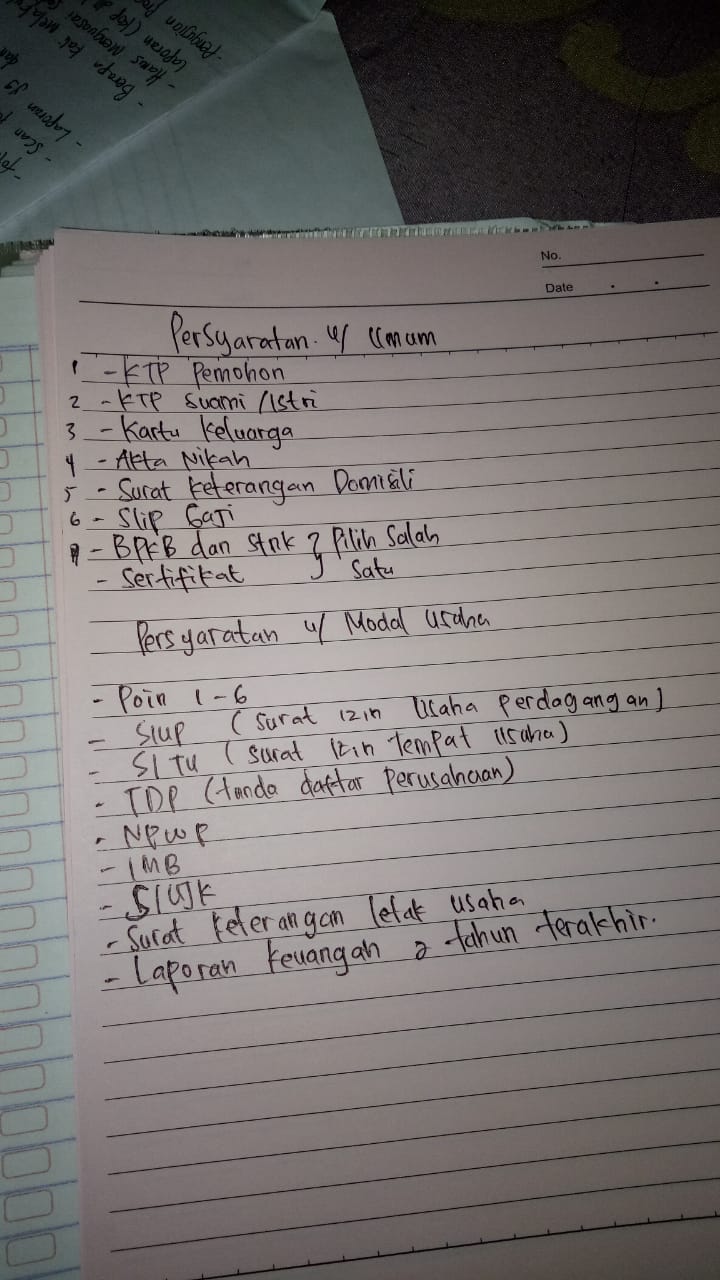 - Pengajuan
Laporan (tiap
- Harus menguasai
- Berapa kali
- Laporan
- Scan
No.
Date
Persyaratan. u/ Umum
1 - KTP Pemohon
2 - KTP Suami / Istri
3 - Kartu Keluarga
4 - Akta Nikah
5 - Surat Keterangan Domisili
6 - Slip Gaji
- BPKB dan Stnk } Pilih Salah
- Sertifikat Satu
Persyaratan u/ Modal Usaha
- Poin 1-6
- SIUP (Surat izin Usaha perdagangan)
- SITU (Surat Izin Tempat Usaha)
- TDP (tanda daftar Perusahaan)
- NPWP
- IMB
- SIUJK
- Surat Keterangan letak usaha
- Laporan Keuangan 2 tahun terakhir.